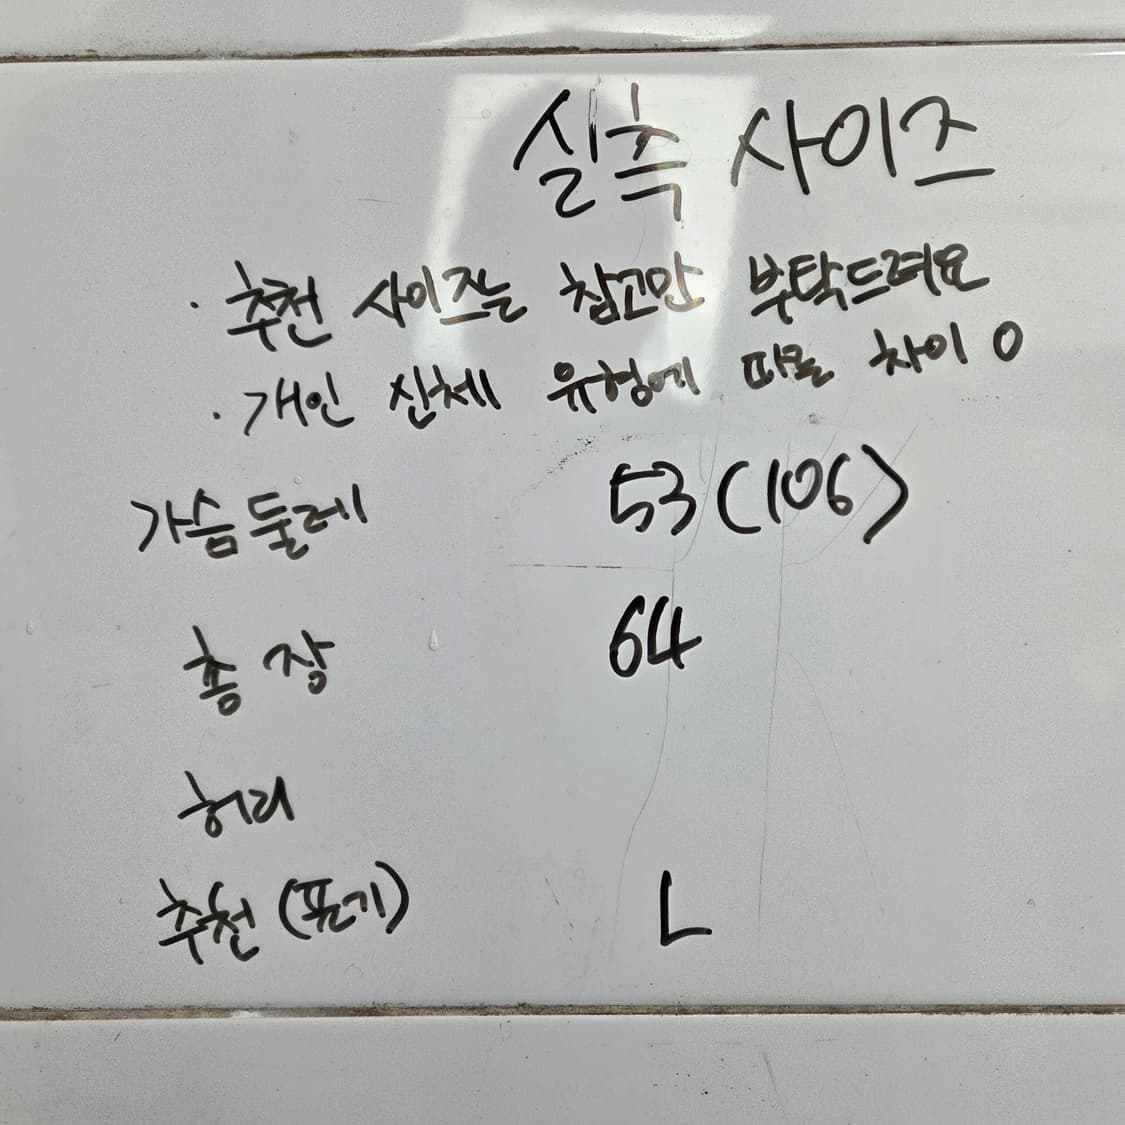 실측 사이즈
· 추천 사이즈는 참고만 부탁드려요
· 개인 신체 유형에 따를 차이 O
가슴둘레 53(106)
총장 64
허리
추천(표기) L